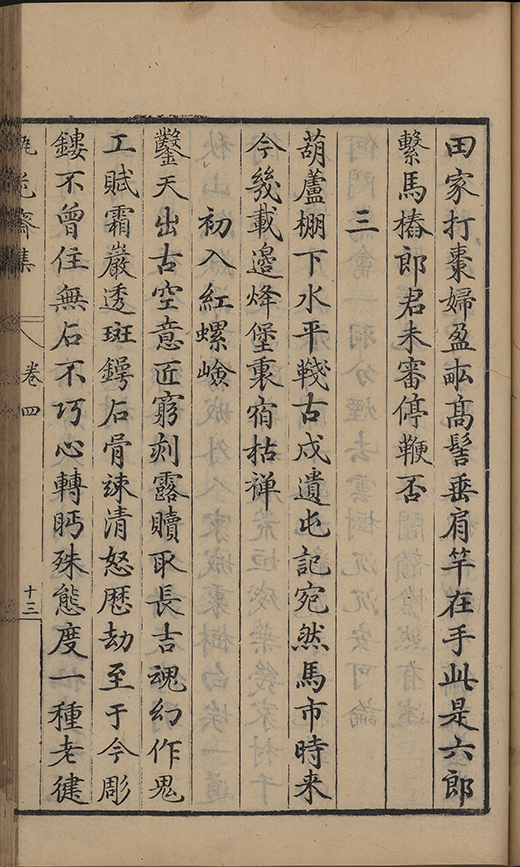 田家打棗婦盈畝髙髻垂肩竿在手此是六郎
繫馬樁郎君未審停鞭否
三
葫蘆棚下水平古戍遺屯記宛然馬市時来
今幾載邊烽堡裏宿枯禅
初入紅螺嶮
鑿天出古空意匠窮刻露贖取長吉魂幻作鬼
工賦霜巖透斑鍔石骨竦清怒歷劫至于今彫
鏤不曾住無石不巧心轉眄殊態度一種老健
齋集 卷四 十三